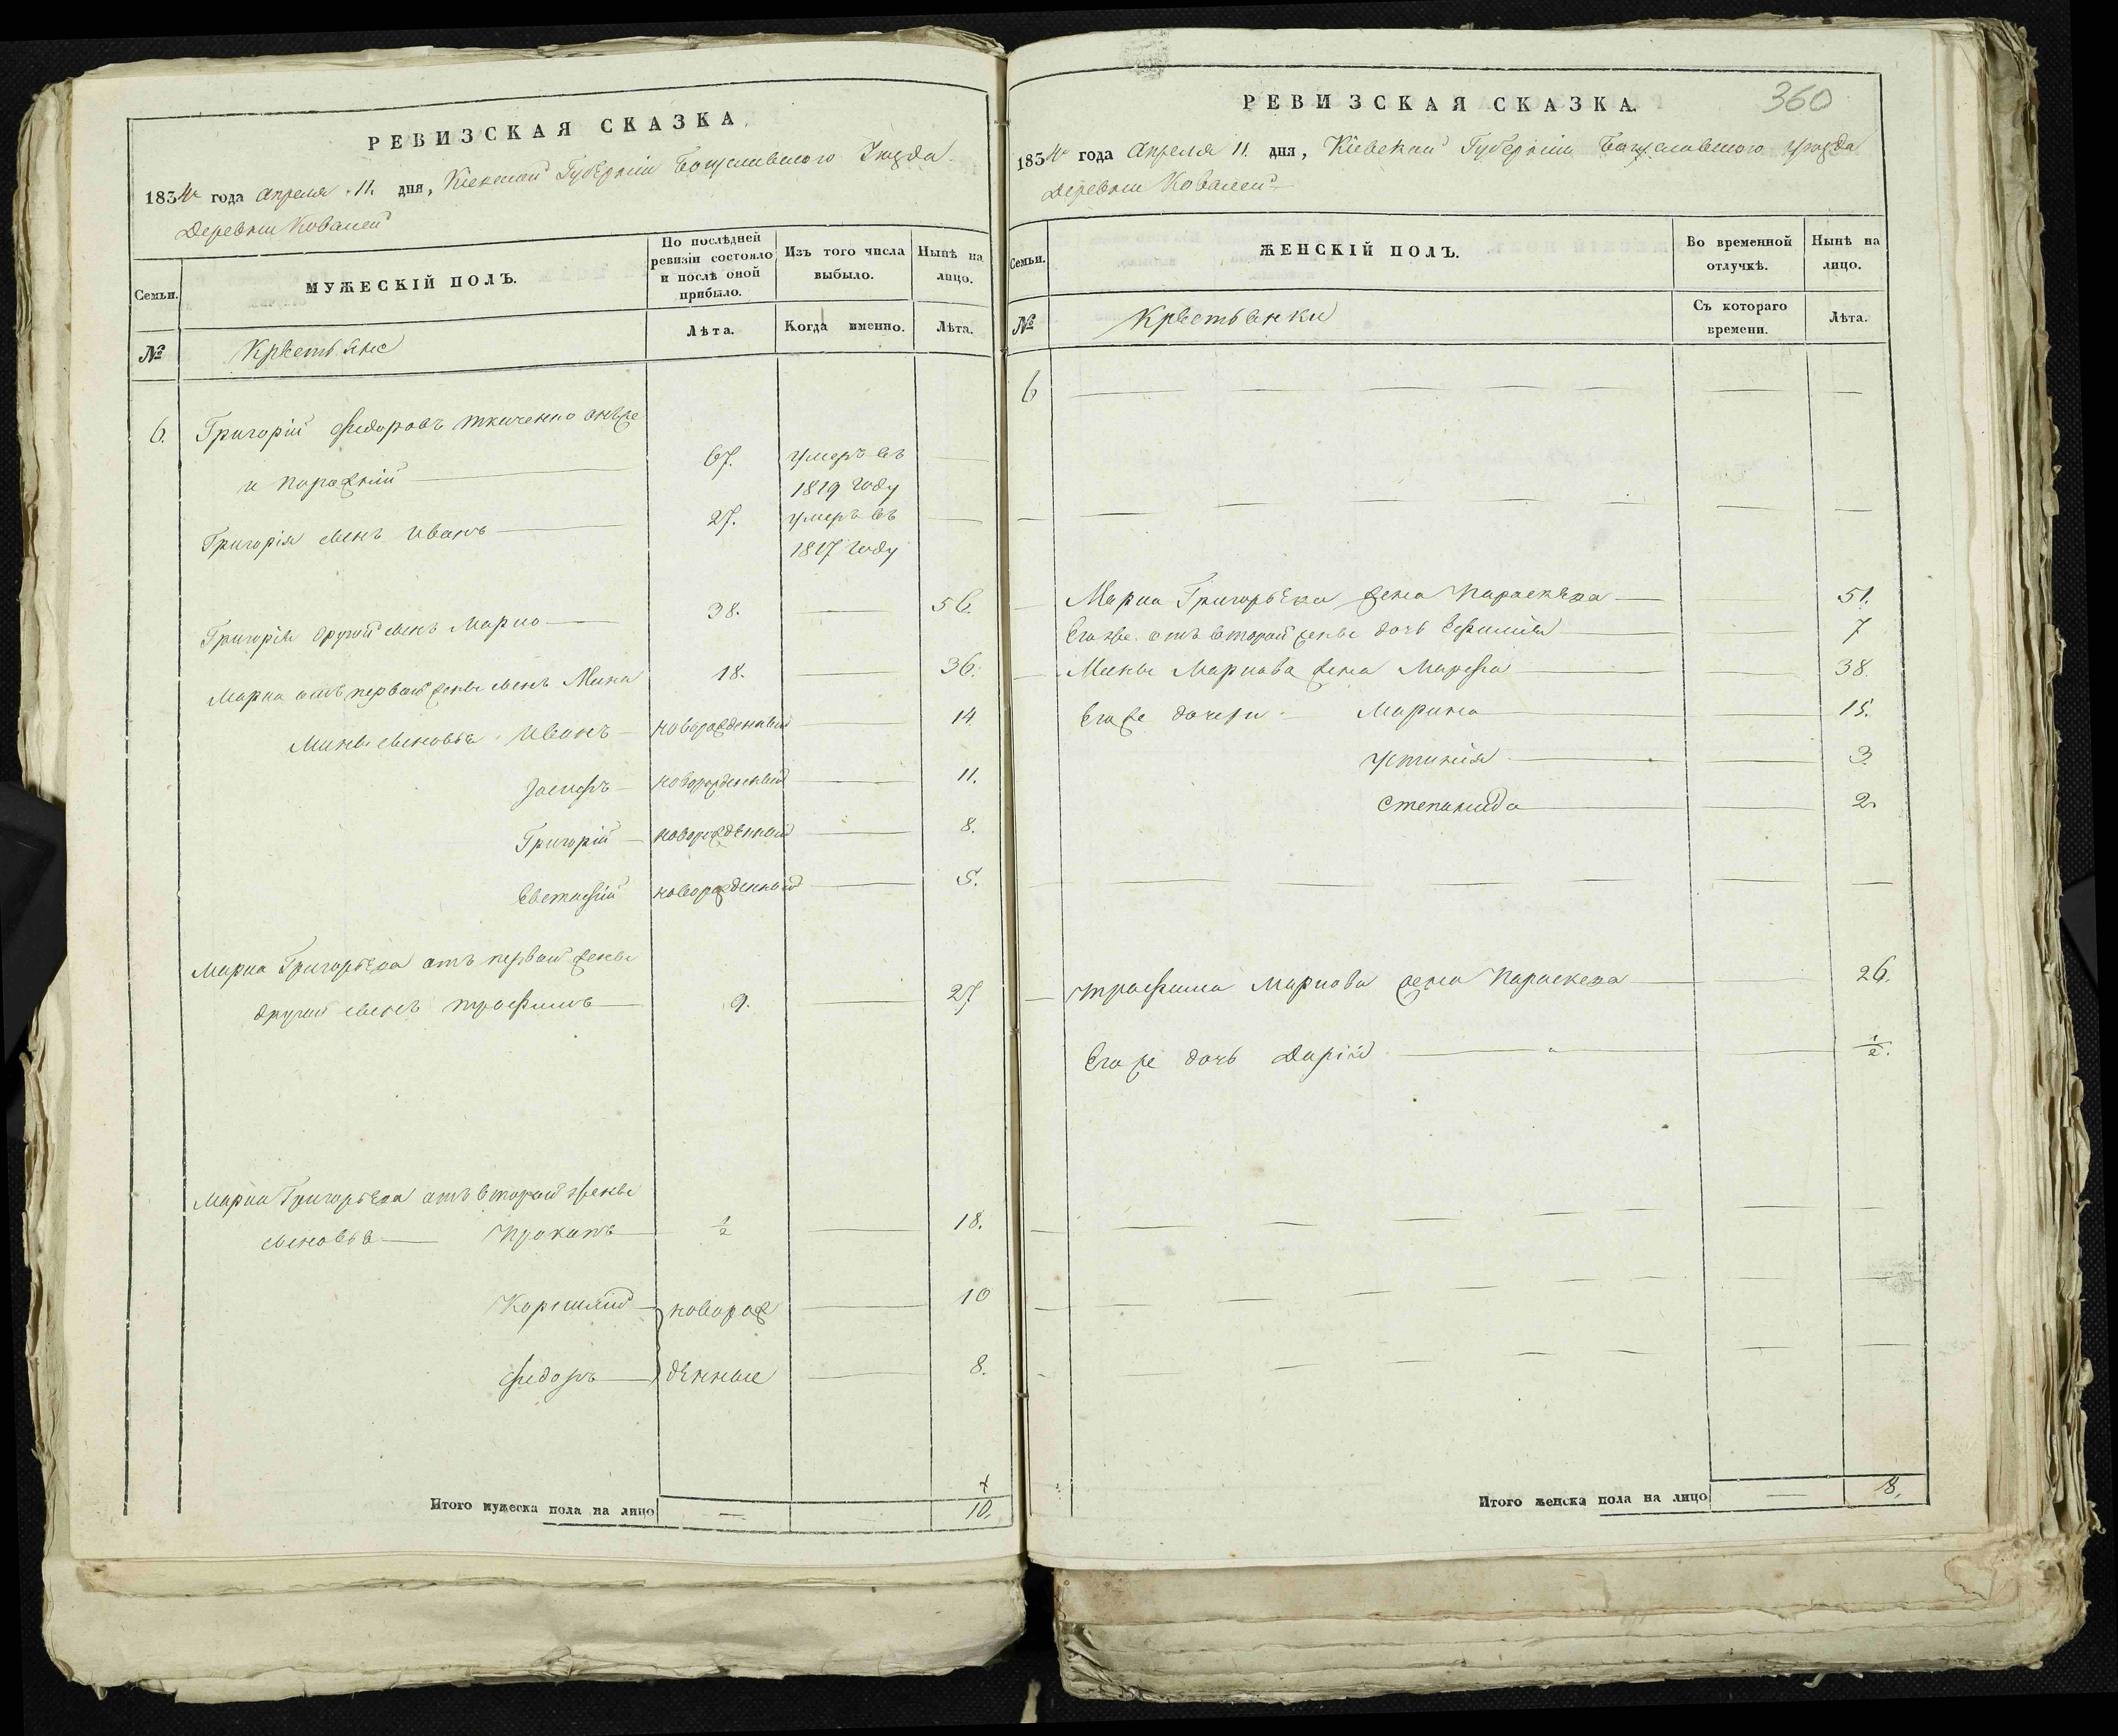 РЕВИЗСКАЯ СКАЗКА
1834 года апреля 11. дня, Кіевской Губерніи Богуславского Уезда
Деревни Ковалей
Семьи. МУЖЕСКІЙ ПОЛЪ. По послѣдней ревизіи состояло и послѣ оной прибыло. Изъ того числа выбыло. Нынѣ на лицо.
№ Крестьяне Лѣта. Когда именно. Лѣта.
6. Григорій Федоровъ Ткаченко онъ же
и Парафній 67. умеръ въ
1819 году
Григорія сынъ Иванъ 27. умеръ въ
1817 году
Григорія другой сынъ Марко 38. 56.
Марка отъ первой жены сынъ Мина 18. 36.
Мины сыновья Иванъ новорожденный 14
Іосифъ новорожденный 11.
Григорій новорожденный 8.
Евстафій новорожденный 5.
Марка Григорьева отъ первой жены
другой сынъ Трофимъ 9. 27
Марка Григорьева отъ второй жены
сыновья Прокопъ ½ 18.
Корнилій новорож 10
Федоръ денные 8.
Итого мужеска пола на лицо 10.
360
РЕВИЗСКАЯ СКАЗКА
1834 года апреля 11. дня, Кіевской Губерніи Богуславского уезда
Деревни Ковалей
Семьи. ЖЕНСКІЙ ПОЛЪ. Во временной отлучкѣ. Нынѣ на лицо.
№ Крестьянки Съ котораго времени. Лѣта.
6
Марка Григорьева жена Параскева 51.
Его же отъ второй жены дочь Ефимия 7
Мины Маркова жена Марфа 38.
Его же дочери Марина 15.
Устинія 3
Степанида 2.
Трофима Маркова жена Параскева 26.
Его же дочь Дарія ½.
Итого женска пола на лицо 8.